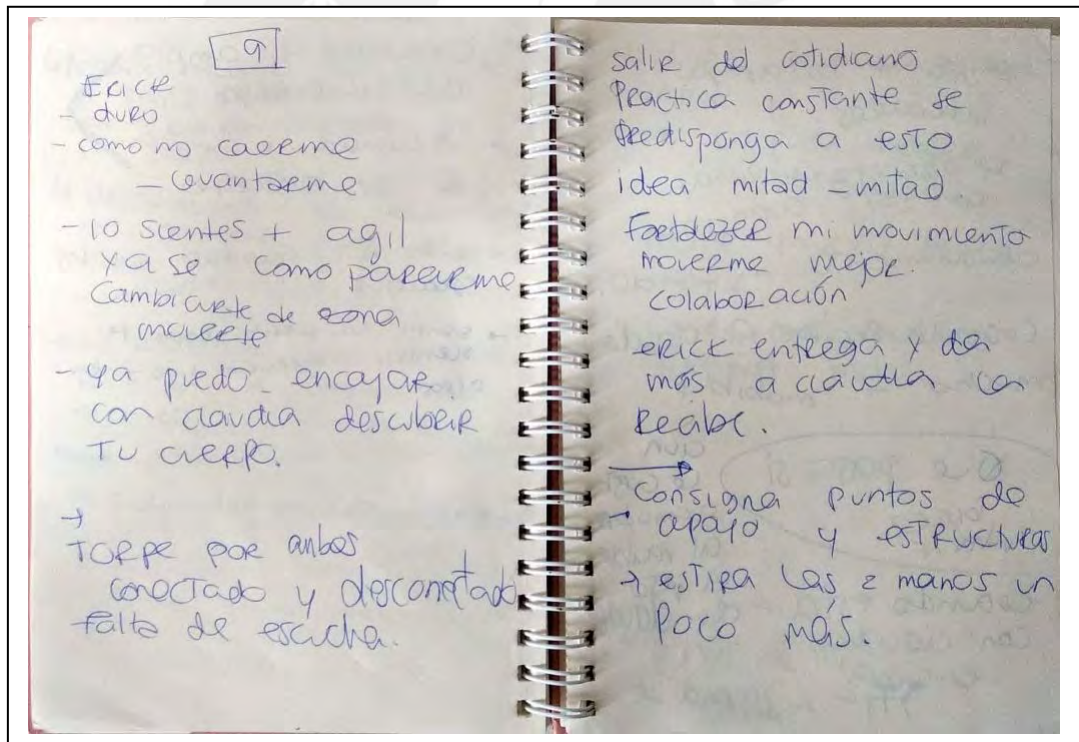 9
ERICK
- duro
- como no caerme
- levantarme
- lo sientes + agil
ya se como pararme
Cambiarte de zona
moverte
- ya puedo encajar
con claudia descubrir
TU CUERPO.
→
TORPE POR ambos
conectado y desconectado
falta de escucha.
salir del cotidiano
Practica constante se
predisponga a esto
idea mitad - mitad.
Fortalezer mi movimiento
moverme mejor.
colaboración
erick entrega y da
más a claudia
Recibe.
→
Consigna puntos de
- apoyo y estructuras
→ estira las 2 manos un
Poco más.